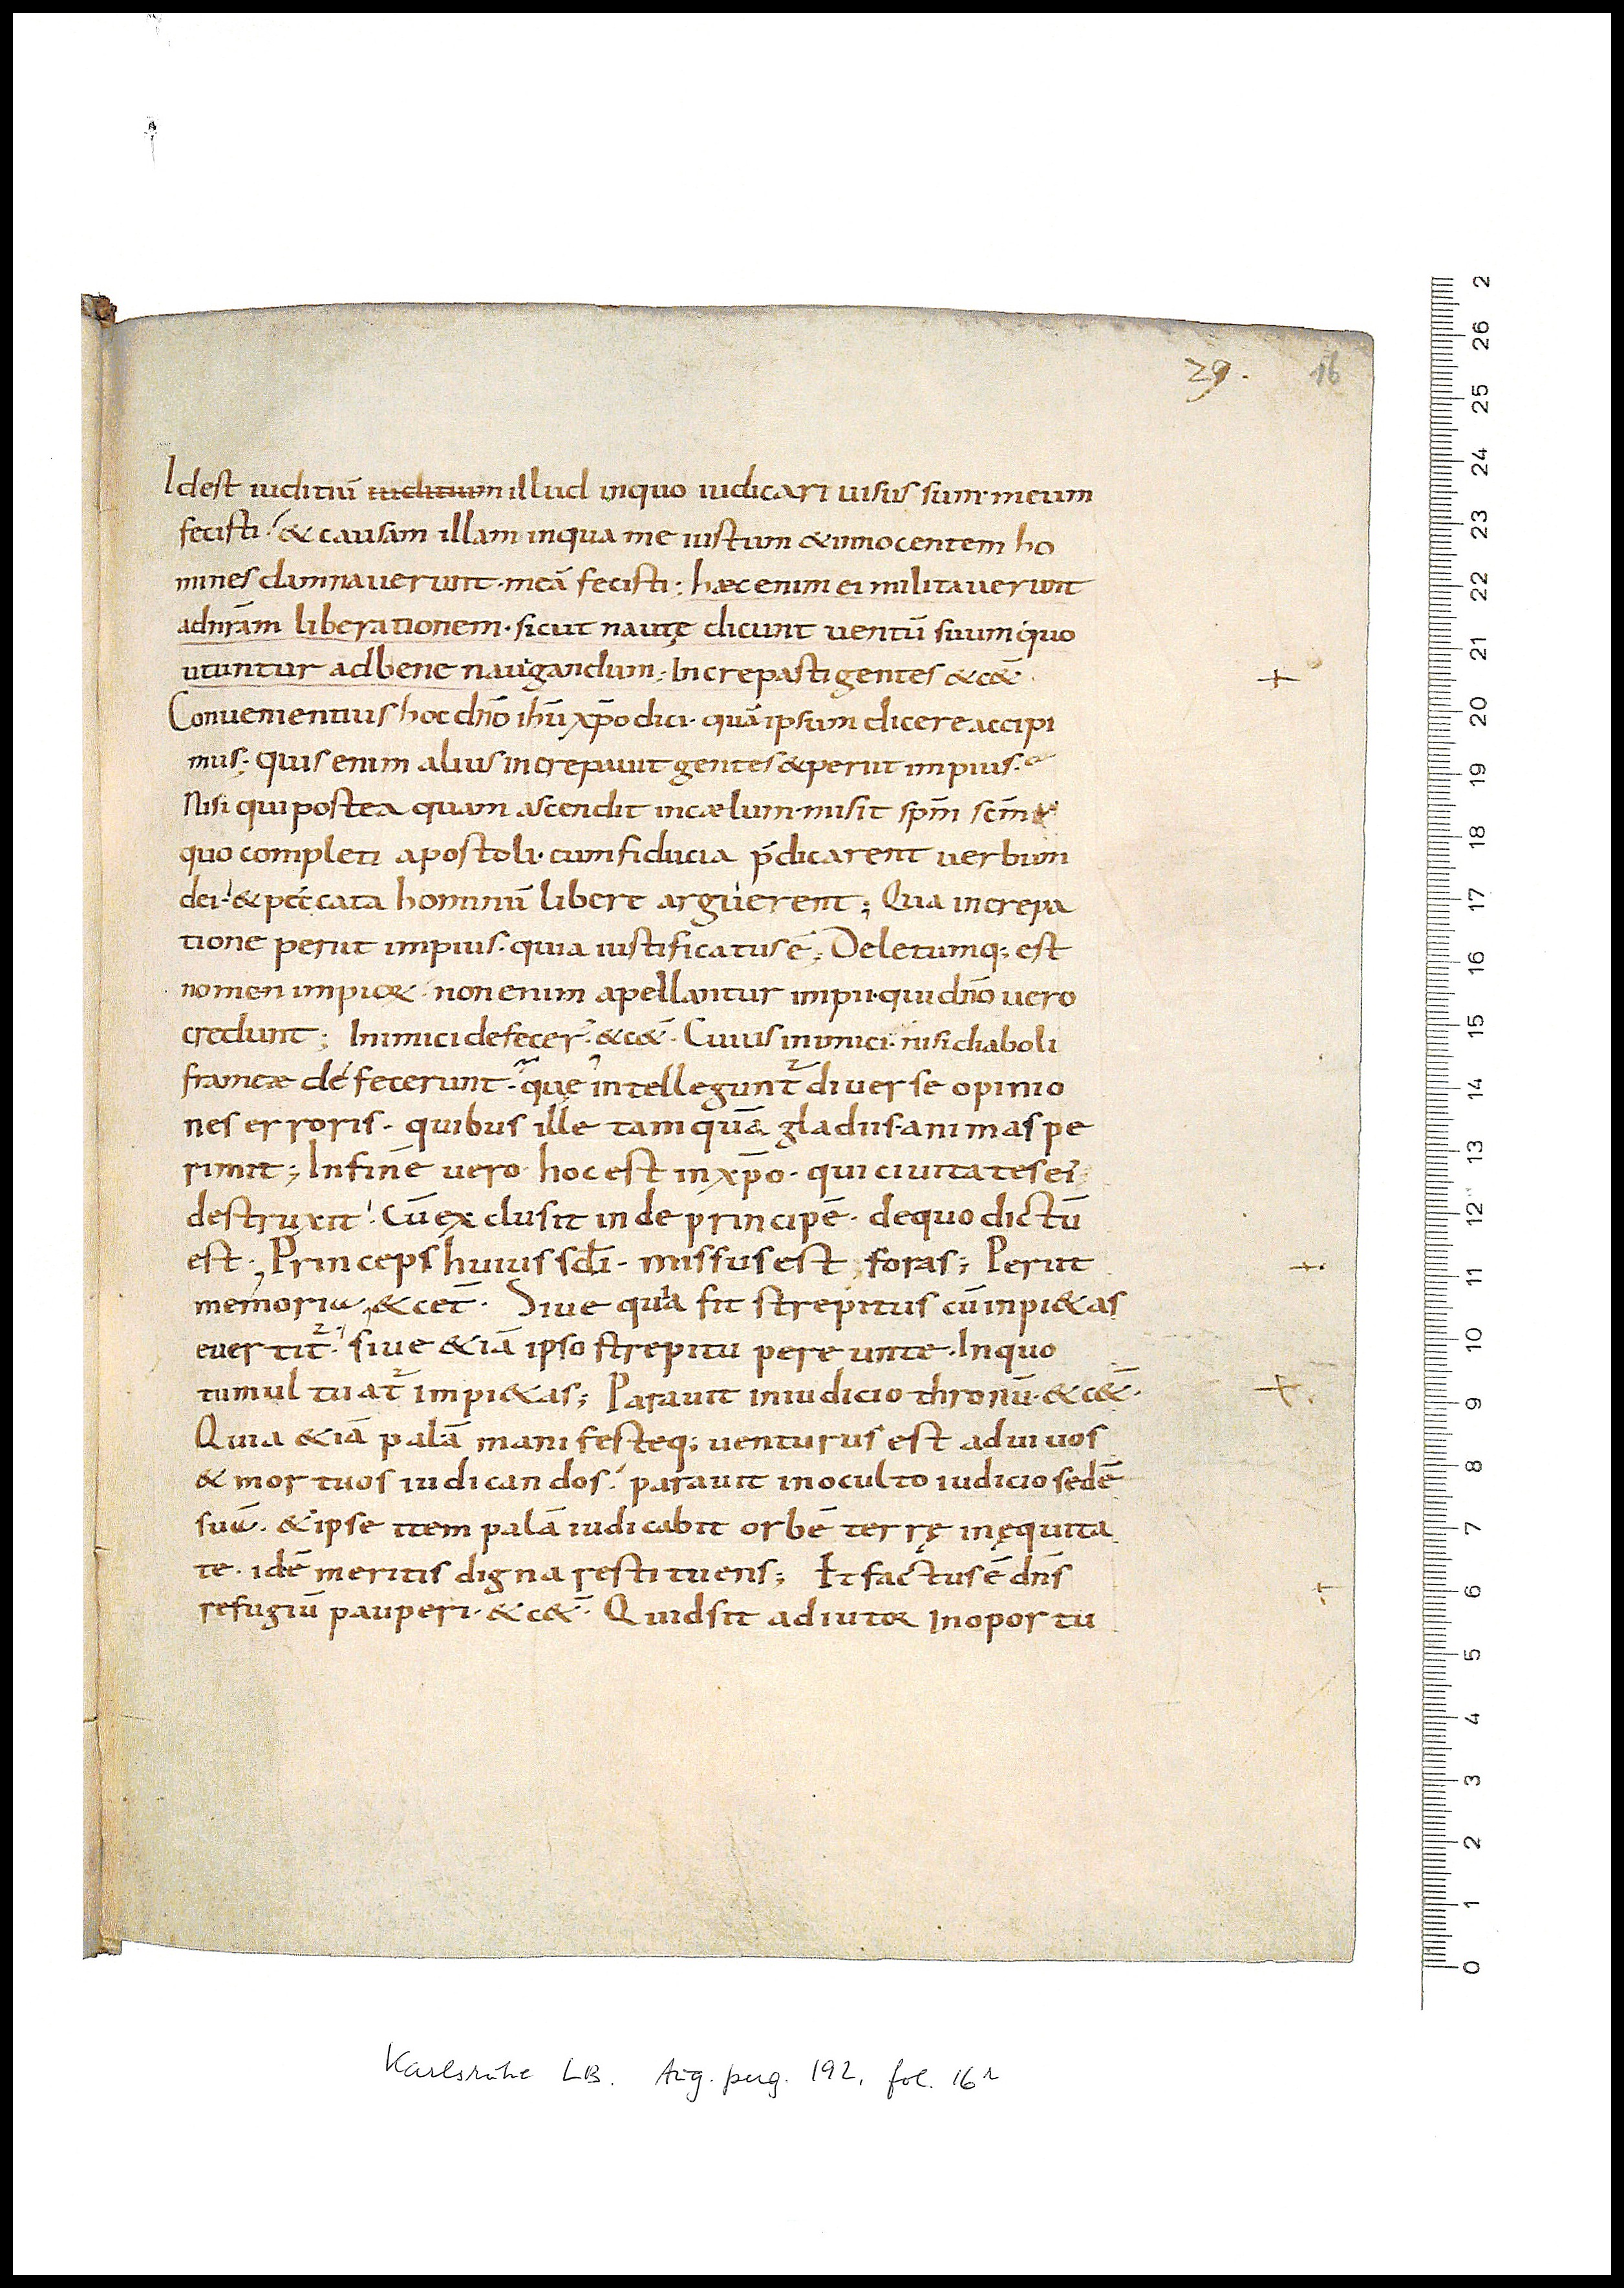 29. 16
Idest iuditiū iuditium illud inquo iudicari uisus sum·meum
fecisti· & causam illam inqua me iustum &innocentem ho
mines damnauerunt·meā fecisti; hæc enim ei militauerunt
adnr̄am liberationem·sicut nautę dicunt uentū suum quo
utuntur adbene nauigandum; Increpasti gentes &c&̄·
Conuenientius hoc dn̄o ihū xp̄o dici· quā ipsum dicere accipi
mus; quis enim alius increpauit gentes &periit impius·
Nisi qui postea quam ascendit incælum·misit sp̄m sc̄m
quo completi apostoli· cum fiducia p̄dicarent uerbum
dei· & peccata hominū libere arguerent; Qua increpa
tione periit impius· quia iustificatus ē; Deletumq; est
nomen impior· non enim apellantur impii·qui dn̄o uero
credunt; Inimici defecer̄· &c&̄· Cuius inimici· nisi diaboli
frameæ defecerunt· que intellegunt̄ diuerse opinio
nes erroris· quibus ille tamquā gladiis·animas pe
rimit; Infine uero· hoc est in xp̄o· qui ciuitates ei
destruxit· Cū exclusit inde principē· dequo dictū
est·, Princeps huius scl̄i· missus est foras; Periit
memoria, & cet̄· Siue quia fit strepitus cū inpi&as
euertit̄· siue &iā ipso strepitu pereunte·Inquo
tumultuat̄ impi&as; Parauit iniudicio thronū·&c&̄·
Quia &iā palā manifesteq; uenturus est aduiuos
& mortuos iudicandos· parauit inoculto iudicio sedē
suā· & ipse item palā iudicabit orbē terrę inęquita
te· idē meritis digna restituens; Et factus ē dn̄s
refugiū pauperi· &c&̄· Quid sit adiutor inoportu
Karlsruhe LB. Aug. perg. 192, fol. 16r
0 1 2 3 4 5 6 7 8 9 10 11 12 13 14 15 16 17 18 19 20 21 22 23 24 25 26 2